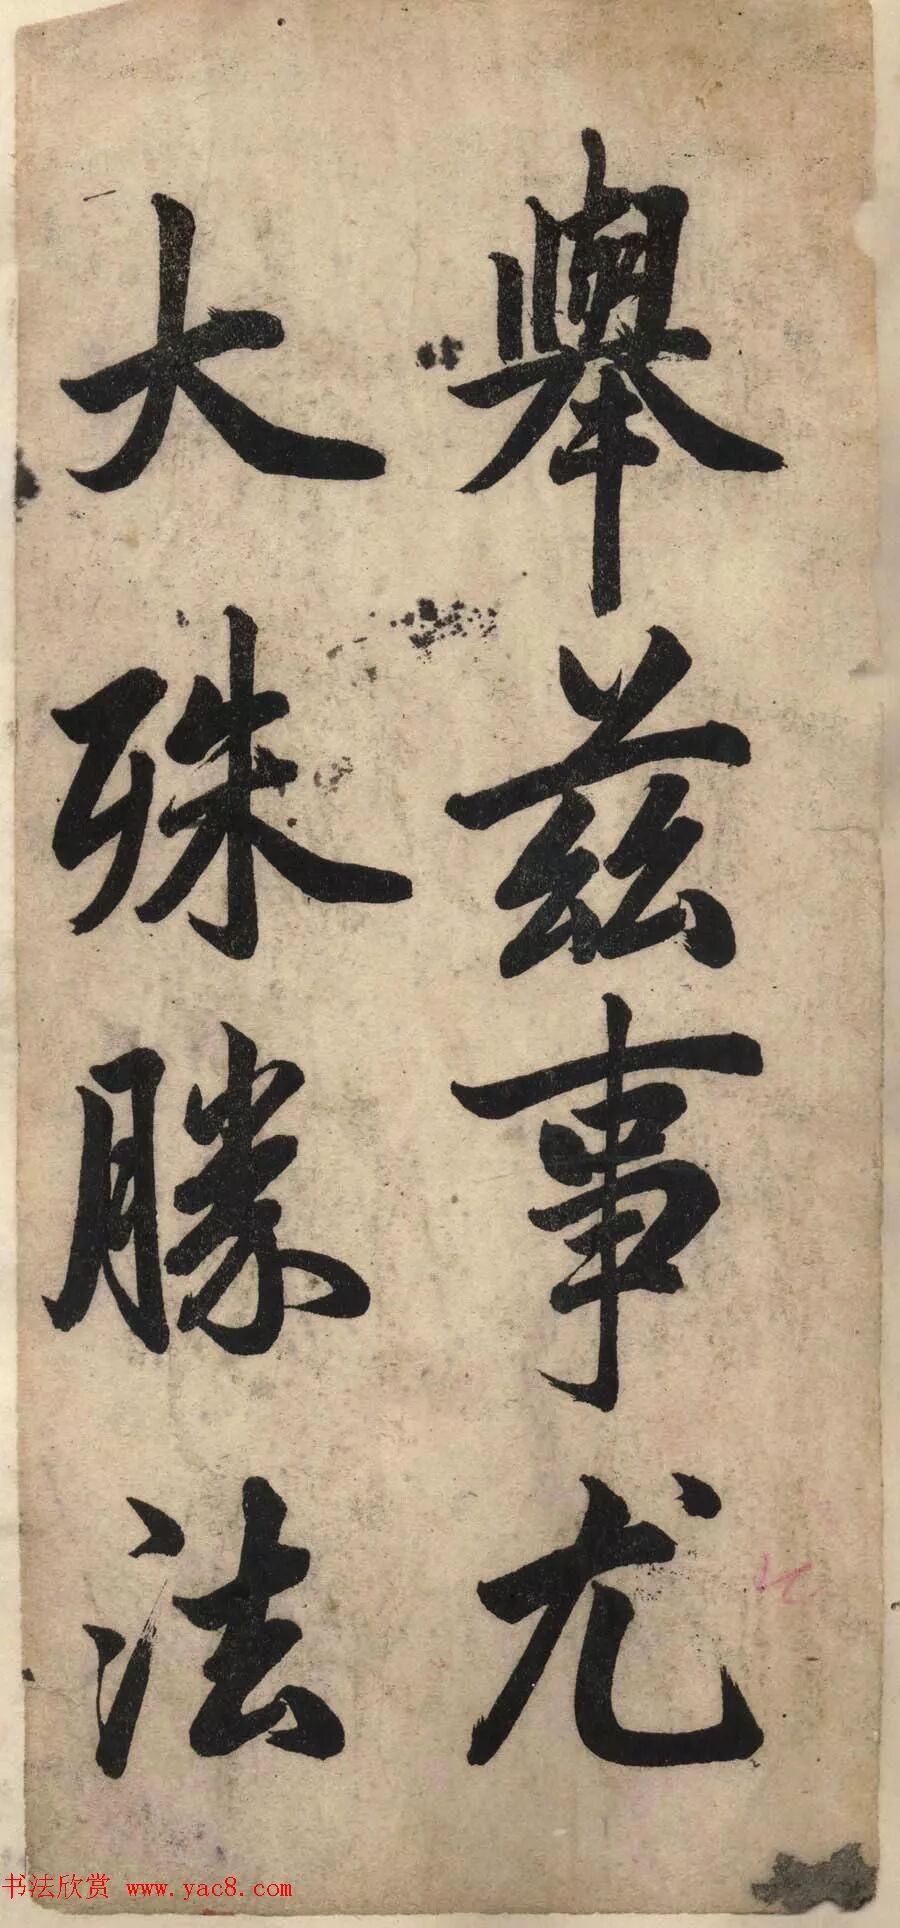 舉兹事尤
大殊勝法
书法欣赏 www.yac8.com